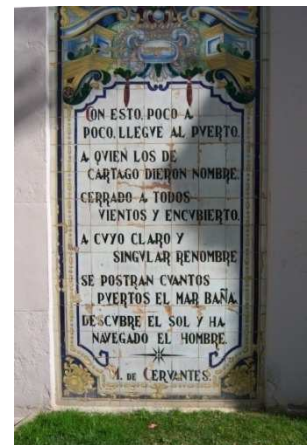 CON ESTO, POCO A
POCO, LLEGVE AL PVERTO.
A QVIEN LOS DE
CARTAGO DIERON NOMBRE.
CERRADO A TODOS
VIENTOS Y ENCVBIERTO.
A CVYO CLARO Y
SINGVLAR RENOMBRE
SE POSTRAN CVANTOS
PVERTOS EL MAR BAÑA.
DESCVBRE EL SOL Y HA
NAVEGADO EL HOMBRE.
M. DE CERVANTES.